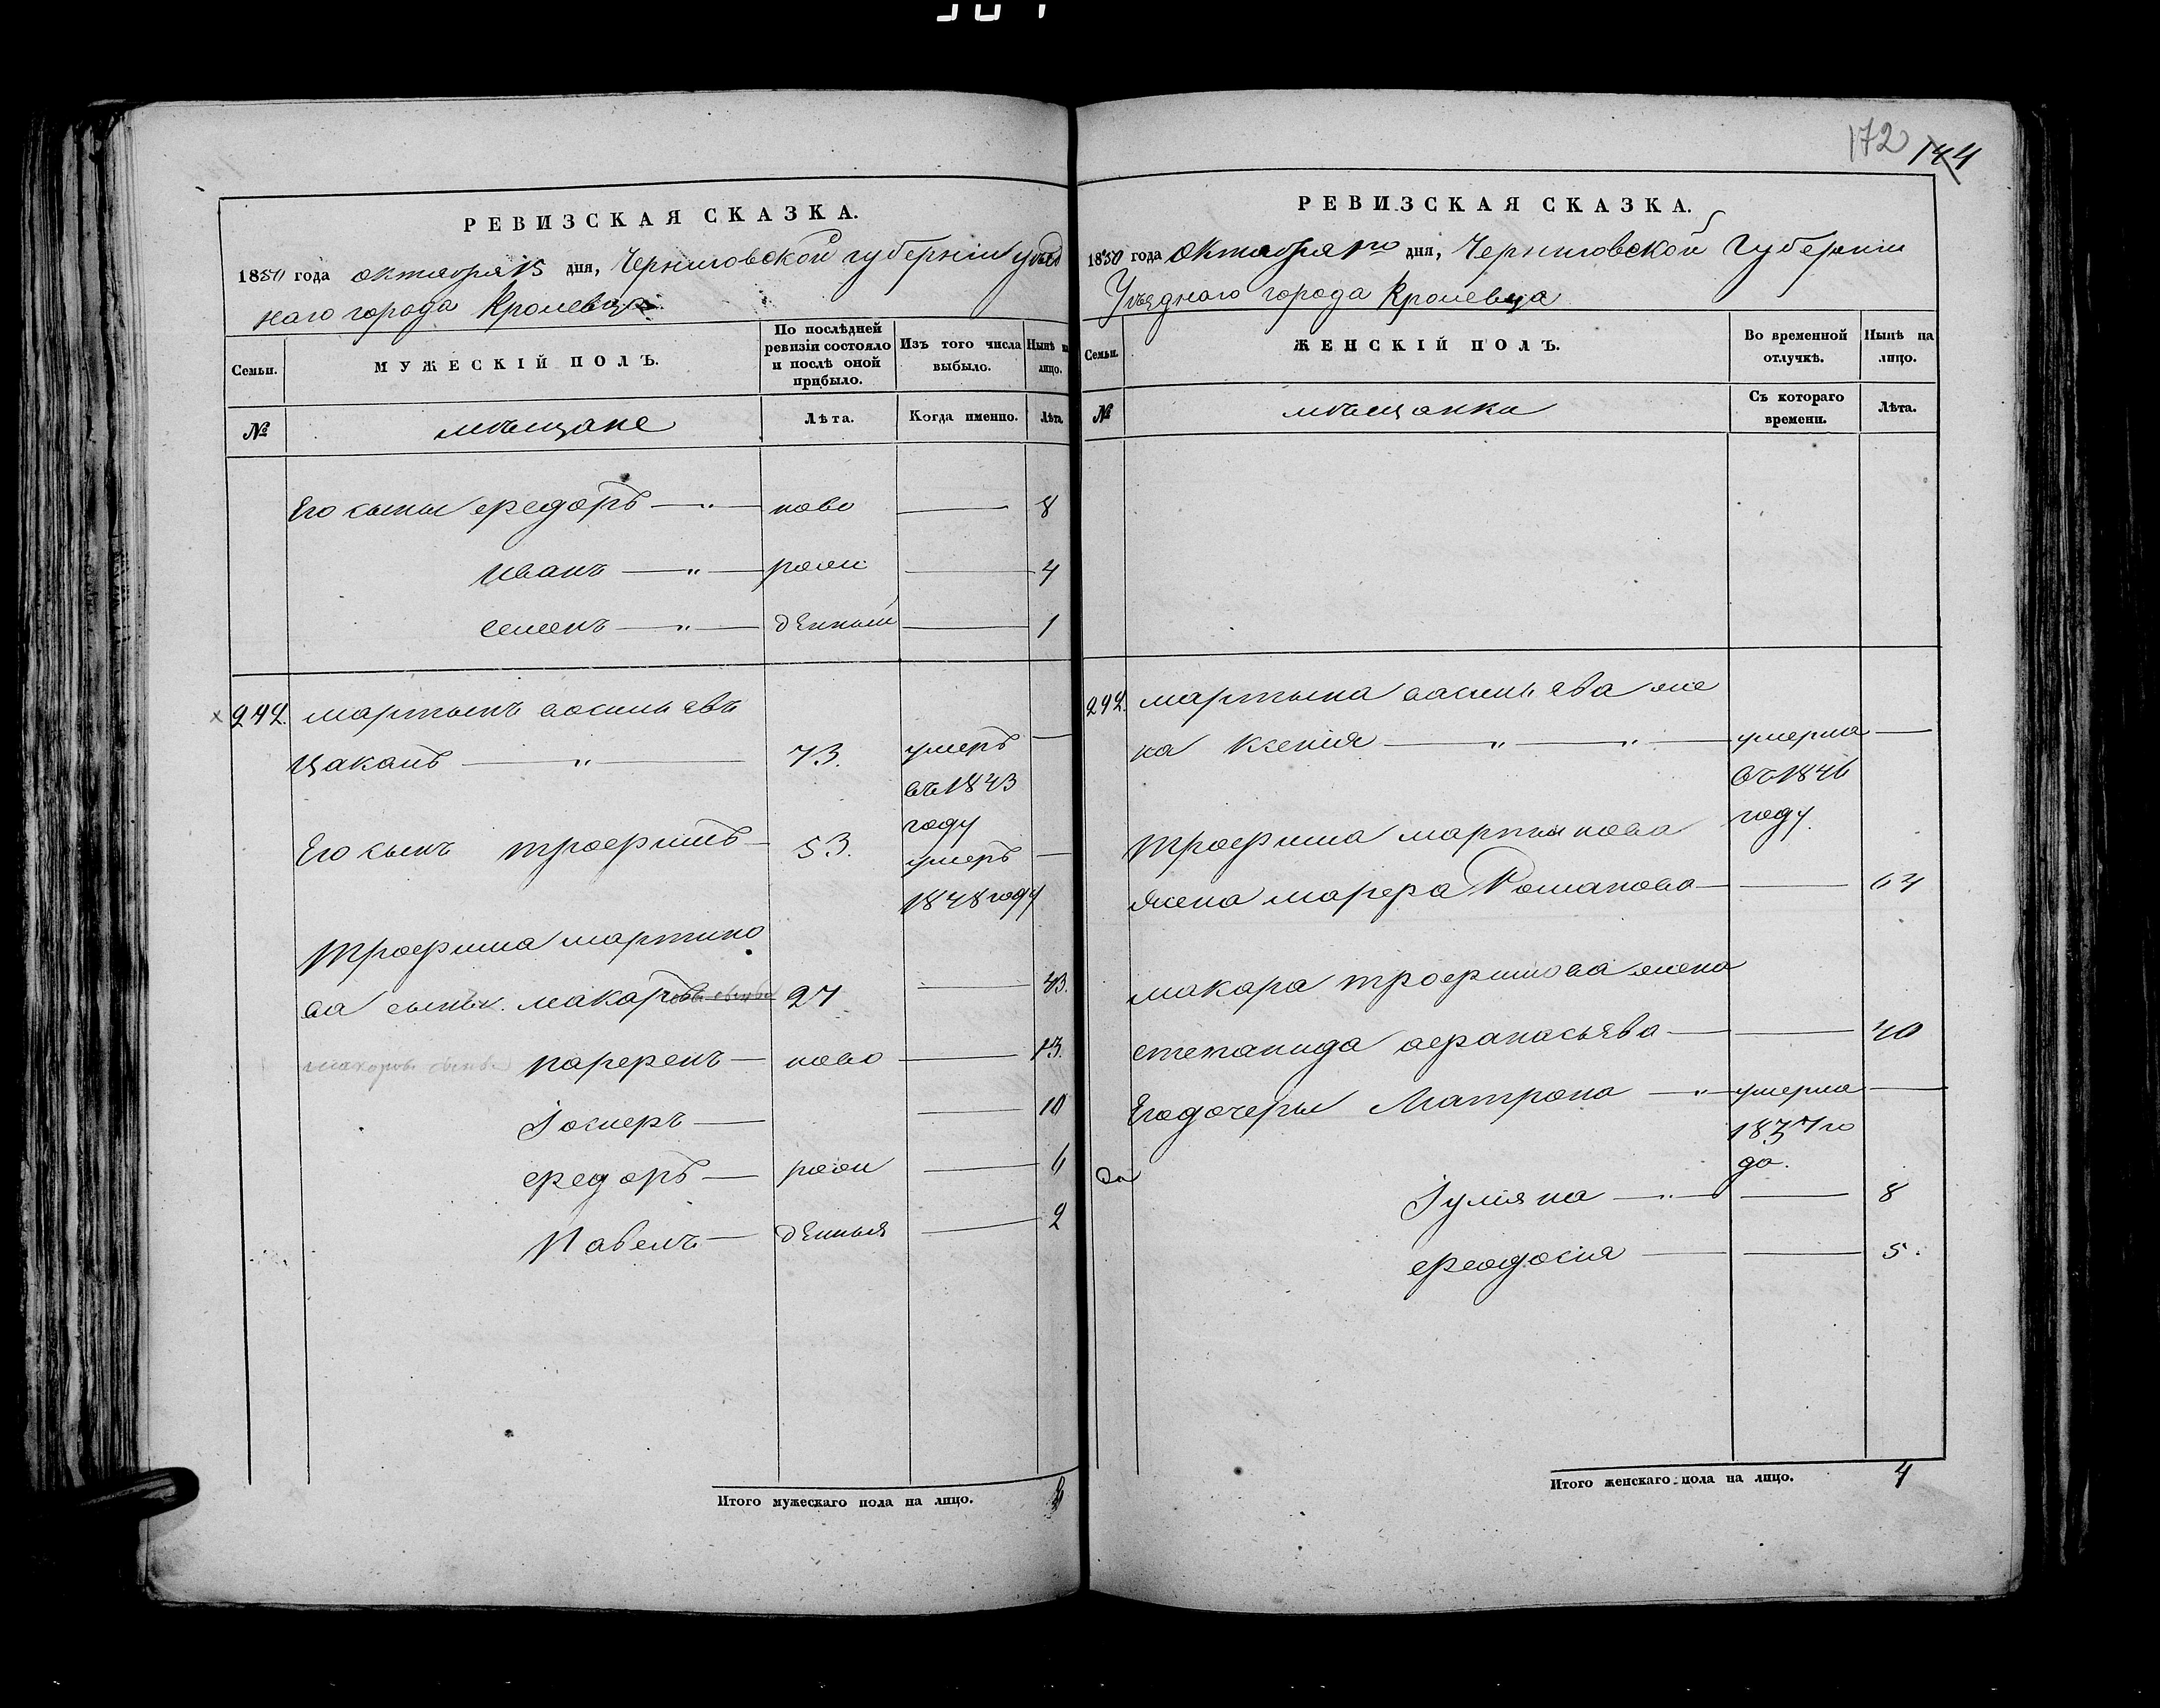 172 144
РЕВИЗСКАЯ СКАЗКА.
1850 года октября 15 дня, Черниговской губернии уѣзд
наго города Кролевца
Семьи.
МУЖЕСКІЙ ПОЛЪ.
По послѣдней ревизіи состояло и послѣ оной прибыло.
Изъ того числа выбыло.
Нынѣ на лицо.
№
мѣщане
Лѣта.
Когда именно.
Лѣта.
Его сыны Федоръ — " — ново — 8
Иванъ — " — рож — 4
Семенъ — " — денный — 1
242. Мартынъ Васильевъ
Цаканъ — " — 73. умеръ —
въ 1843
году
Его сынъ Трофимъ — 53. умеръ —
1848 году
Трофима Мартино
ва сынъ. Макаръ 27 — 43.
макаровы сынов. Парфенъ — ново — 13.
Іосифъ — — 10
Федоръ — рож — 6
Павелъ — денныя — 2
Итого мужескаго пола на лицо. 8
РЕВИЗСКАЯ СКАЗКА.
1850 года октября дня, Черниговской Губернии
Уѣзднаго города Кролевца
Семьи.
ЖЕНСКІЙ ПОЛЪ.
Во временной отлучкѣ.
Нынѣ на лицо.
№
мѣщанки
Съ котораго времени.
Лѣта.
242. Мартына Васильева же
на Ксения — " — " — умерла —
въ 1846
году
Трофима Мартинова
жена Марфа Романова — — 64
Макара Трофимова жена
Степанида Афанасьева — — 40
Его дочеры Матрона — " — умерла —
1837 го
да.
Іулияна — " — — 8
Феодосия — — 5.
Итого женскаго пола на лицо. 4